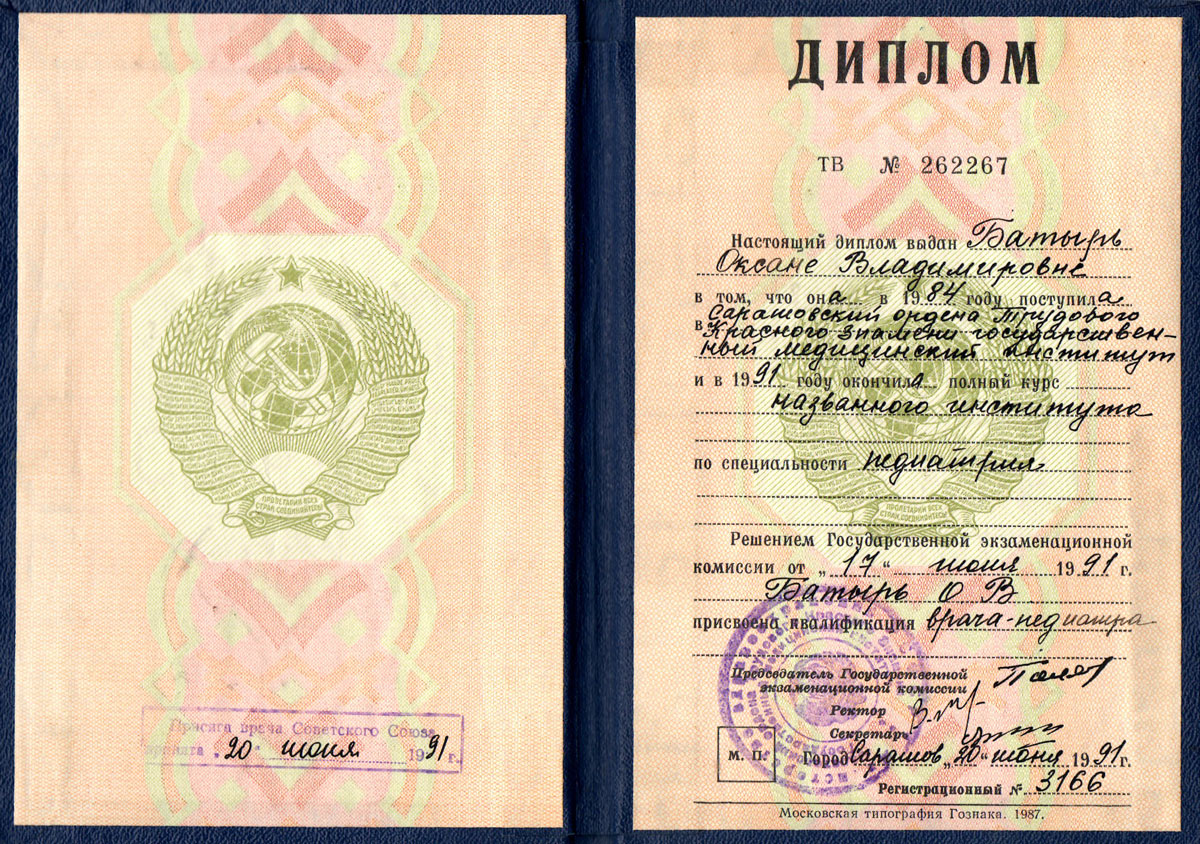 ПРОЛЕТАРИИ ВСЕХ
СТРАН, СОЕДИНЯЙТЕСЬ!
Присяга врача Советского Союза
принята „20“ июня 1991г.
ДИПЛОМ
ТВ № 262267
Настоящий диплом выдан Батырь
Оксане Владимировне
в том, что она в 1984 году поступила
в Саратовский ордена Трудового
Красного знамени государствен-
ный медицинский институт
и в 1991 году окончила полный курс
названного института
по специальности педиатрия
ПРОЛЕТАРИИ ВСЕХ
СТРАН, СОЕДИНЯЙТЕСЬ!
Решением Государственной экзаменационной
комиссии от „17“ июня 1991 г.
Батырь О В
присвоена квалификация врача-педиатра
Председатель Государственной
экзаменационной комиссии
Ректор
Секретарь
М. П.
Город Саратов „20“ июня 1991г.
Регистрационный № 3166
Московская типография Гознака. 1987.